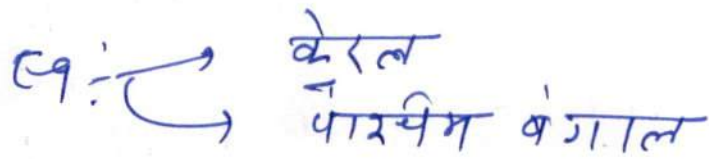 केरल
पश्चिम बंगाल